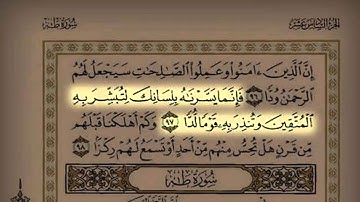 سُورَةُ طه الجُزْءُ السَّادِسَ عَشَرَ
إِنَّ ٱلَّذِينَ ءَامَنُوا۟ وَعَمِلُوا۟ ٱلصَّٰلِحَٰتِ سَيَجْعَلُ لَهُمُ
ٱلرَّحْمَٰنُ وُدًّا ٩٦ فَإِنَّمَا يَسَّرْنَٰهُ بِلِسَانِكَ لِتُبَشِّرَ بِهِ
ٱلْمُتَّقِينَ وَتُنذِرَ بِهِۦ قَوْمًا لُّدًّا ٩٧ وَكَمْ أَهْلَكْنَا قَبْلَهُم
مِّن قَرْنٍ هَلْ تُحِسُّ مِنْهُم مِّنْ أَحَدٍ أَوْ تَسْمَعُ لَهُمْ رِكْزًۢا ٩٨
سُورَةُ طه